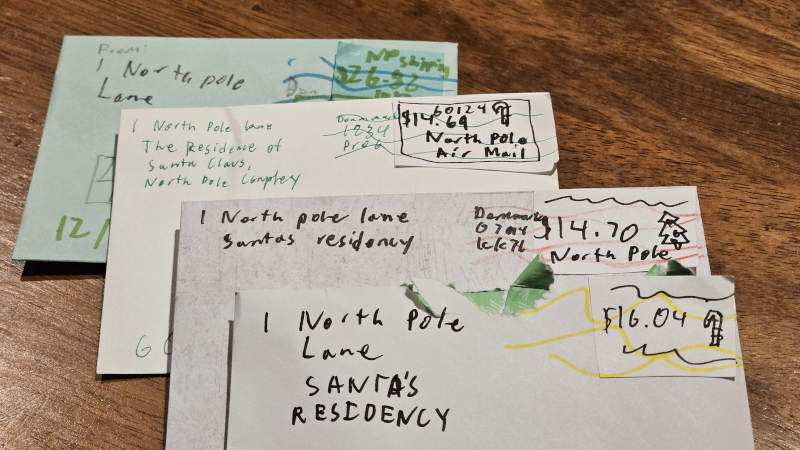 From:
1 North pole
Lane
NP shipping
$26.82
12/
1 North Pole lane
The Residence of
Santa Claus,
North Pole
1234
60124
$14.69
North Pole
Air Mail
GO
1 North pole lane
Santas residency
$14.70
North Pole
1 North Pole
Lane
SANTA'S
RESIDENCY
$16.04